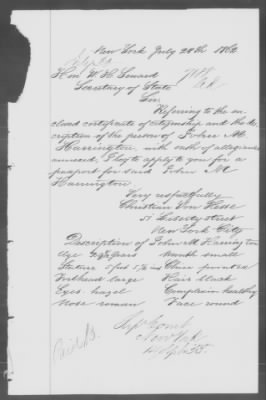 New York July 28th 1862
Hon W. H. Seward
Secretary of State
Sir
Referring to the en-
closed certificate of citizenship and the de-
scription of the person of John M.
Harrington, with oath of allegiance
annexed, I beg to apply to you for a
passport for said John M
Harrington
Very respectfully
Christian Von Hesse
51 Liberty street
New York City
Description of John M. Harrington
Age years Mouth small
Stature 5 feet 5 1/2 ins Chin pointed
Forehead large Hair black
Eyes hazel Complexion healthy
Nose roman Face round
New York